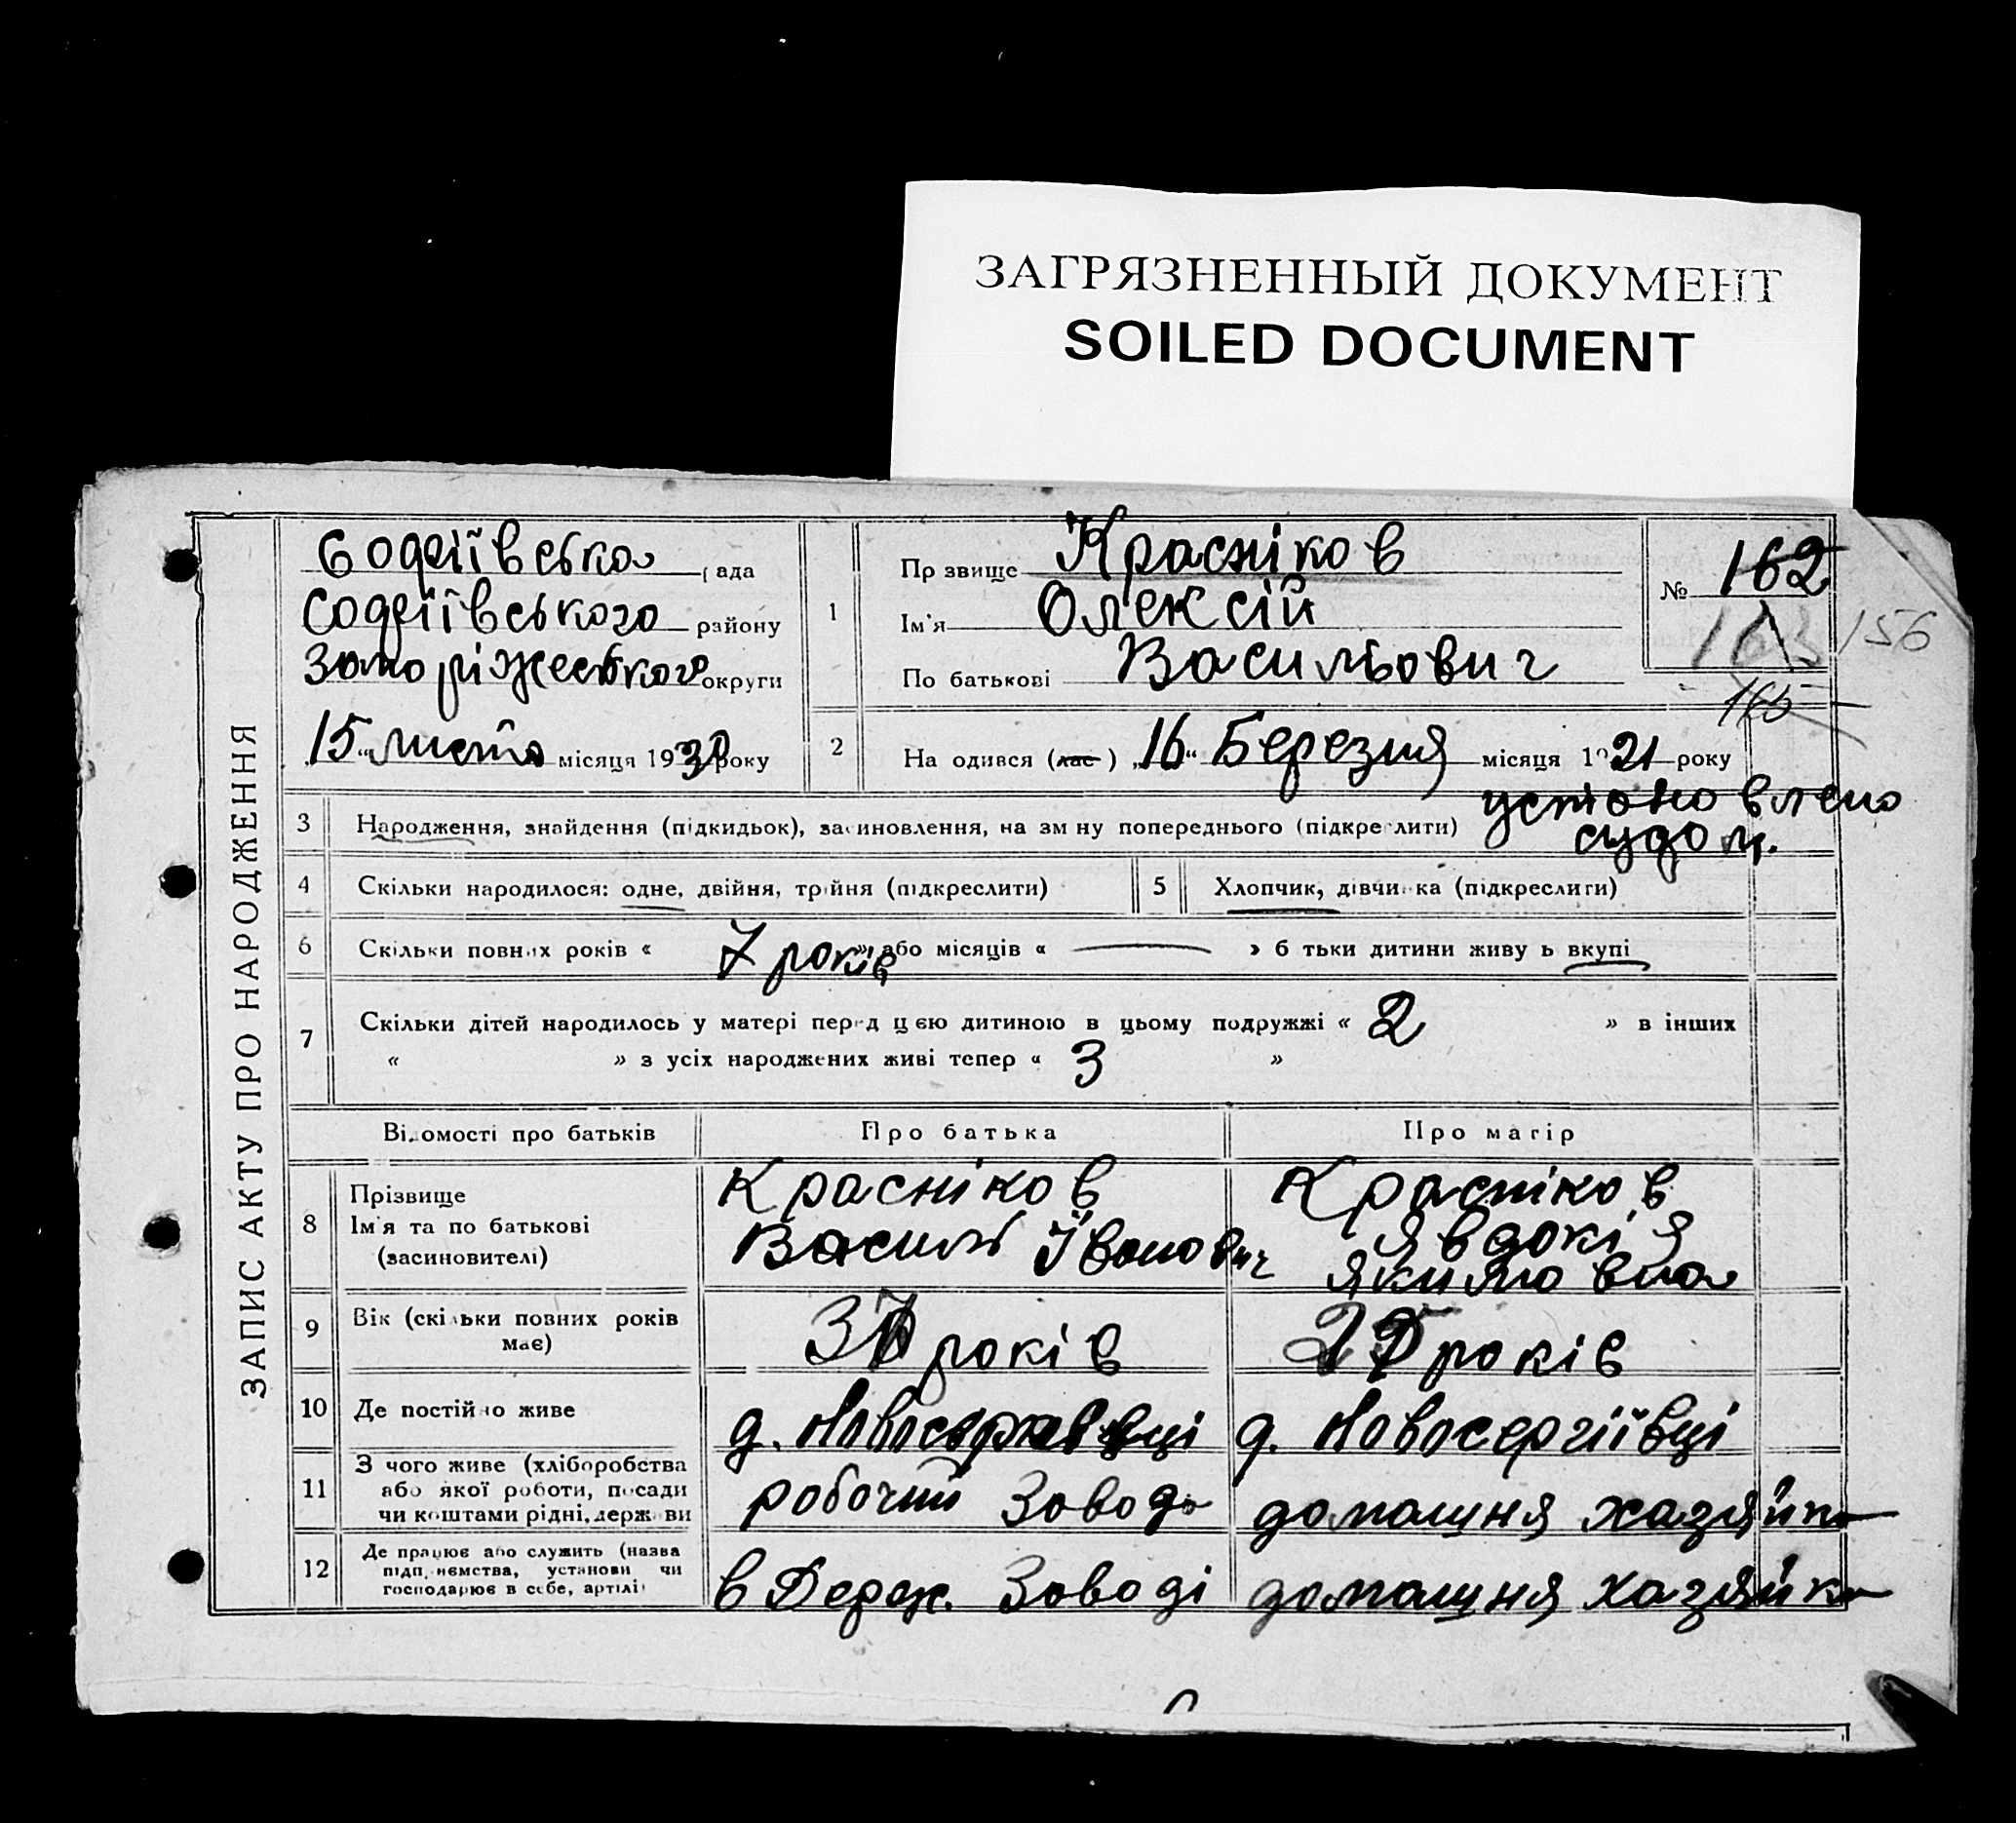 ЗАГРЯЗНЕННЫЙ ДОКУМЕНТ
SOILED DOCUMENT
ЗАПИС АКТУ ПРО НАРОДЖЕННЯ
Софіївська рада
Софіївського району
Запоріжського округи
„15“ листа місяця 1930 року
1
Прізвище Красніков
Ім'я Олексій
По батькові Васильович
№ 162
163
156
165
2
На одився (лас) „16“ Березня місяця 1921 року
3 Народження, знайдення (підкидьок), засиновлення, на зміну попереднього (підкреслити) установлено
судом.
4 Скільки народилося: одне, двійня, трійня (підкреслити)
5 Хлопчик, дівчинка (підкреслити)
6 Скільки повних років « 7 років » або місяців « — » б тьки дитини живу ь вкупі
7 Скільки дітей народилось у матері перед цією дитиною в цьому подружжі « 2 » в інших
« » з усіх народжених живі тепер « 3 »
Відомості про батьків Про батька Про матір
8 Прізвище
Ім'я та по батькові
(засиновителі)
Красніков
Василь Іванович
Красніков
Явдокія
Якимовна
9 Вік (скільки повних років
має)
років
років
10 Де постійно живе
д.
д. Новосергіївці
11 З чого живе (хліборобства
або якої роботи, посади
чи коштами рідні, держави
робочий Завода
домашня хазяйка
12 Де працює або служить (назва
підп. немства, установи чи
господарює в себе, артілі)
в Держ. Заводі
домашня хазяйка